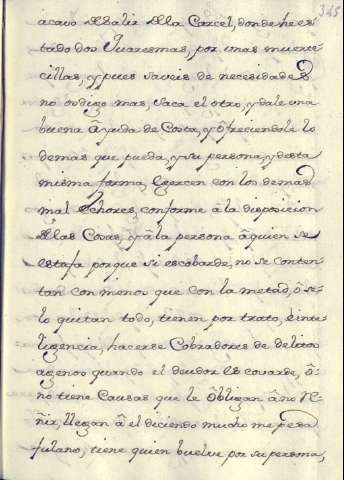 345
acavo de salir de la Carcel, donde he es
tado dos Quaresmas, por unas muerte
cillas, y pues saveis de necesidades
no os digo mas, saca el otro, y dale una
buena âyuda de Costa, y ôfreciendole lo
demas que pueda, y su persona, y desta
misma forma, Egercen con los demas
mal echores, conforme â la disposicion
de las Cosas, y â la persona â quien se
estafa porque si es cobarde, no se conten
tan con menor que con la metad, ô se
lo quitan todo, tienen por trato, ê inte
ligencia, hacerse Cobradores de delitos
agenos quando el deudor es covarde, ô
no tiene Causas que le ôbligan â no Re
ñir, llegan â el diciendo mucho me pesa
fulano, tiene quien buelve por su persona,